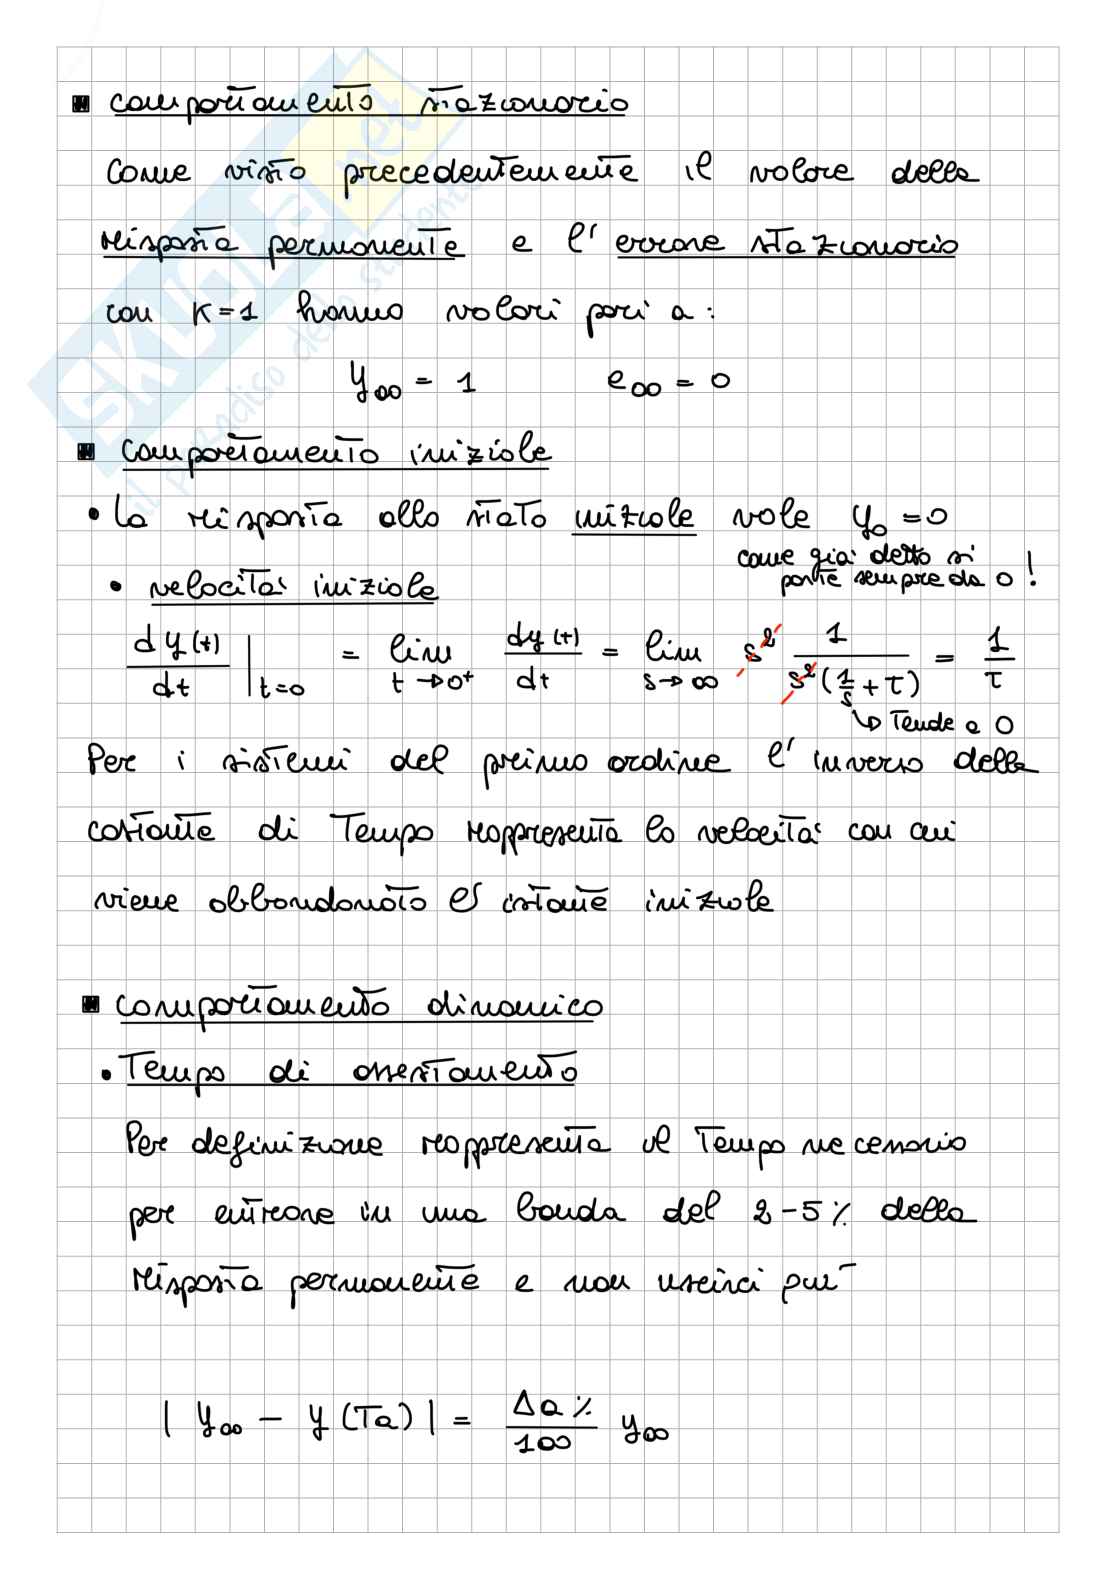 comportamento stazionario
Come visto precedentemente il valore della
risposta permanente e l' errore stazionario
con K=1 hanno valori pari a:
y∞ = 1 e∞ = 0
comportamento iniziale
• La risposta allo stato iniziale vale y₀ = 0
come già detto si
parte sempre da 0!
• velocità iniziale
dy(t)/dt |t=0 = lim t→0⁺ dy(t)/dt = lim s→∞ s² 1/(s²(1/s + τ)) = 1/τ
↳ Tende a 0
Per i sistemi del primo ordine l' inverso della
costante di Tempo rappresenta la velocità con cui
viene abbandonato l' istante iniziale
comportamento dinamico
• Tempo di assestamento
Per definizione rappresenta il Tempo necessario
per entrare in una banda del 2-5% della
risposta permanente e non uscirci più
| y∞ - y(Ta) | = Δa%/100 y∞
SKUOLA.net
il paradiso dello studente